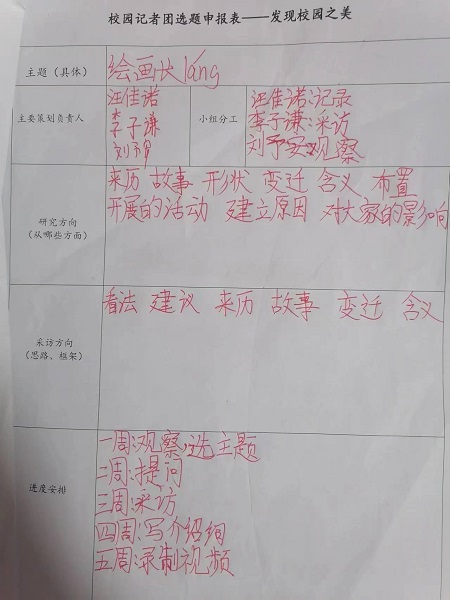 校园记者团选题申报表——发现校园之美
主题（具体）
绘画长láng
主要策划负责人
汪佳诺
李子谦
刘予
小组分工
汪佳诺:记录
李子谦:采访
刘予 观察
研究方向
（从哪些方面）
来历 故事 形状 变迁 含义 布置
开展的活动 建立原因 对大家的影响
采访方向
（思路、框架）
看法 建议 来历 故事 变迁 含义
进度安排
一周:观察,选主题
二周:提问
三周:采访
四周:写介绍
五周:录制视频